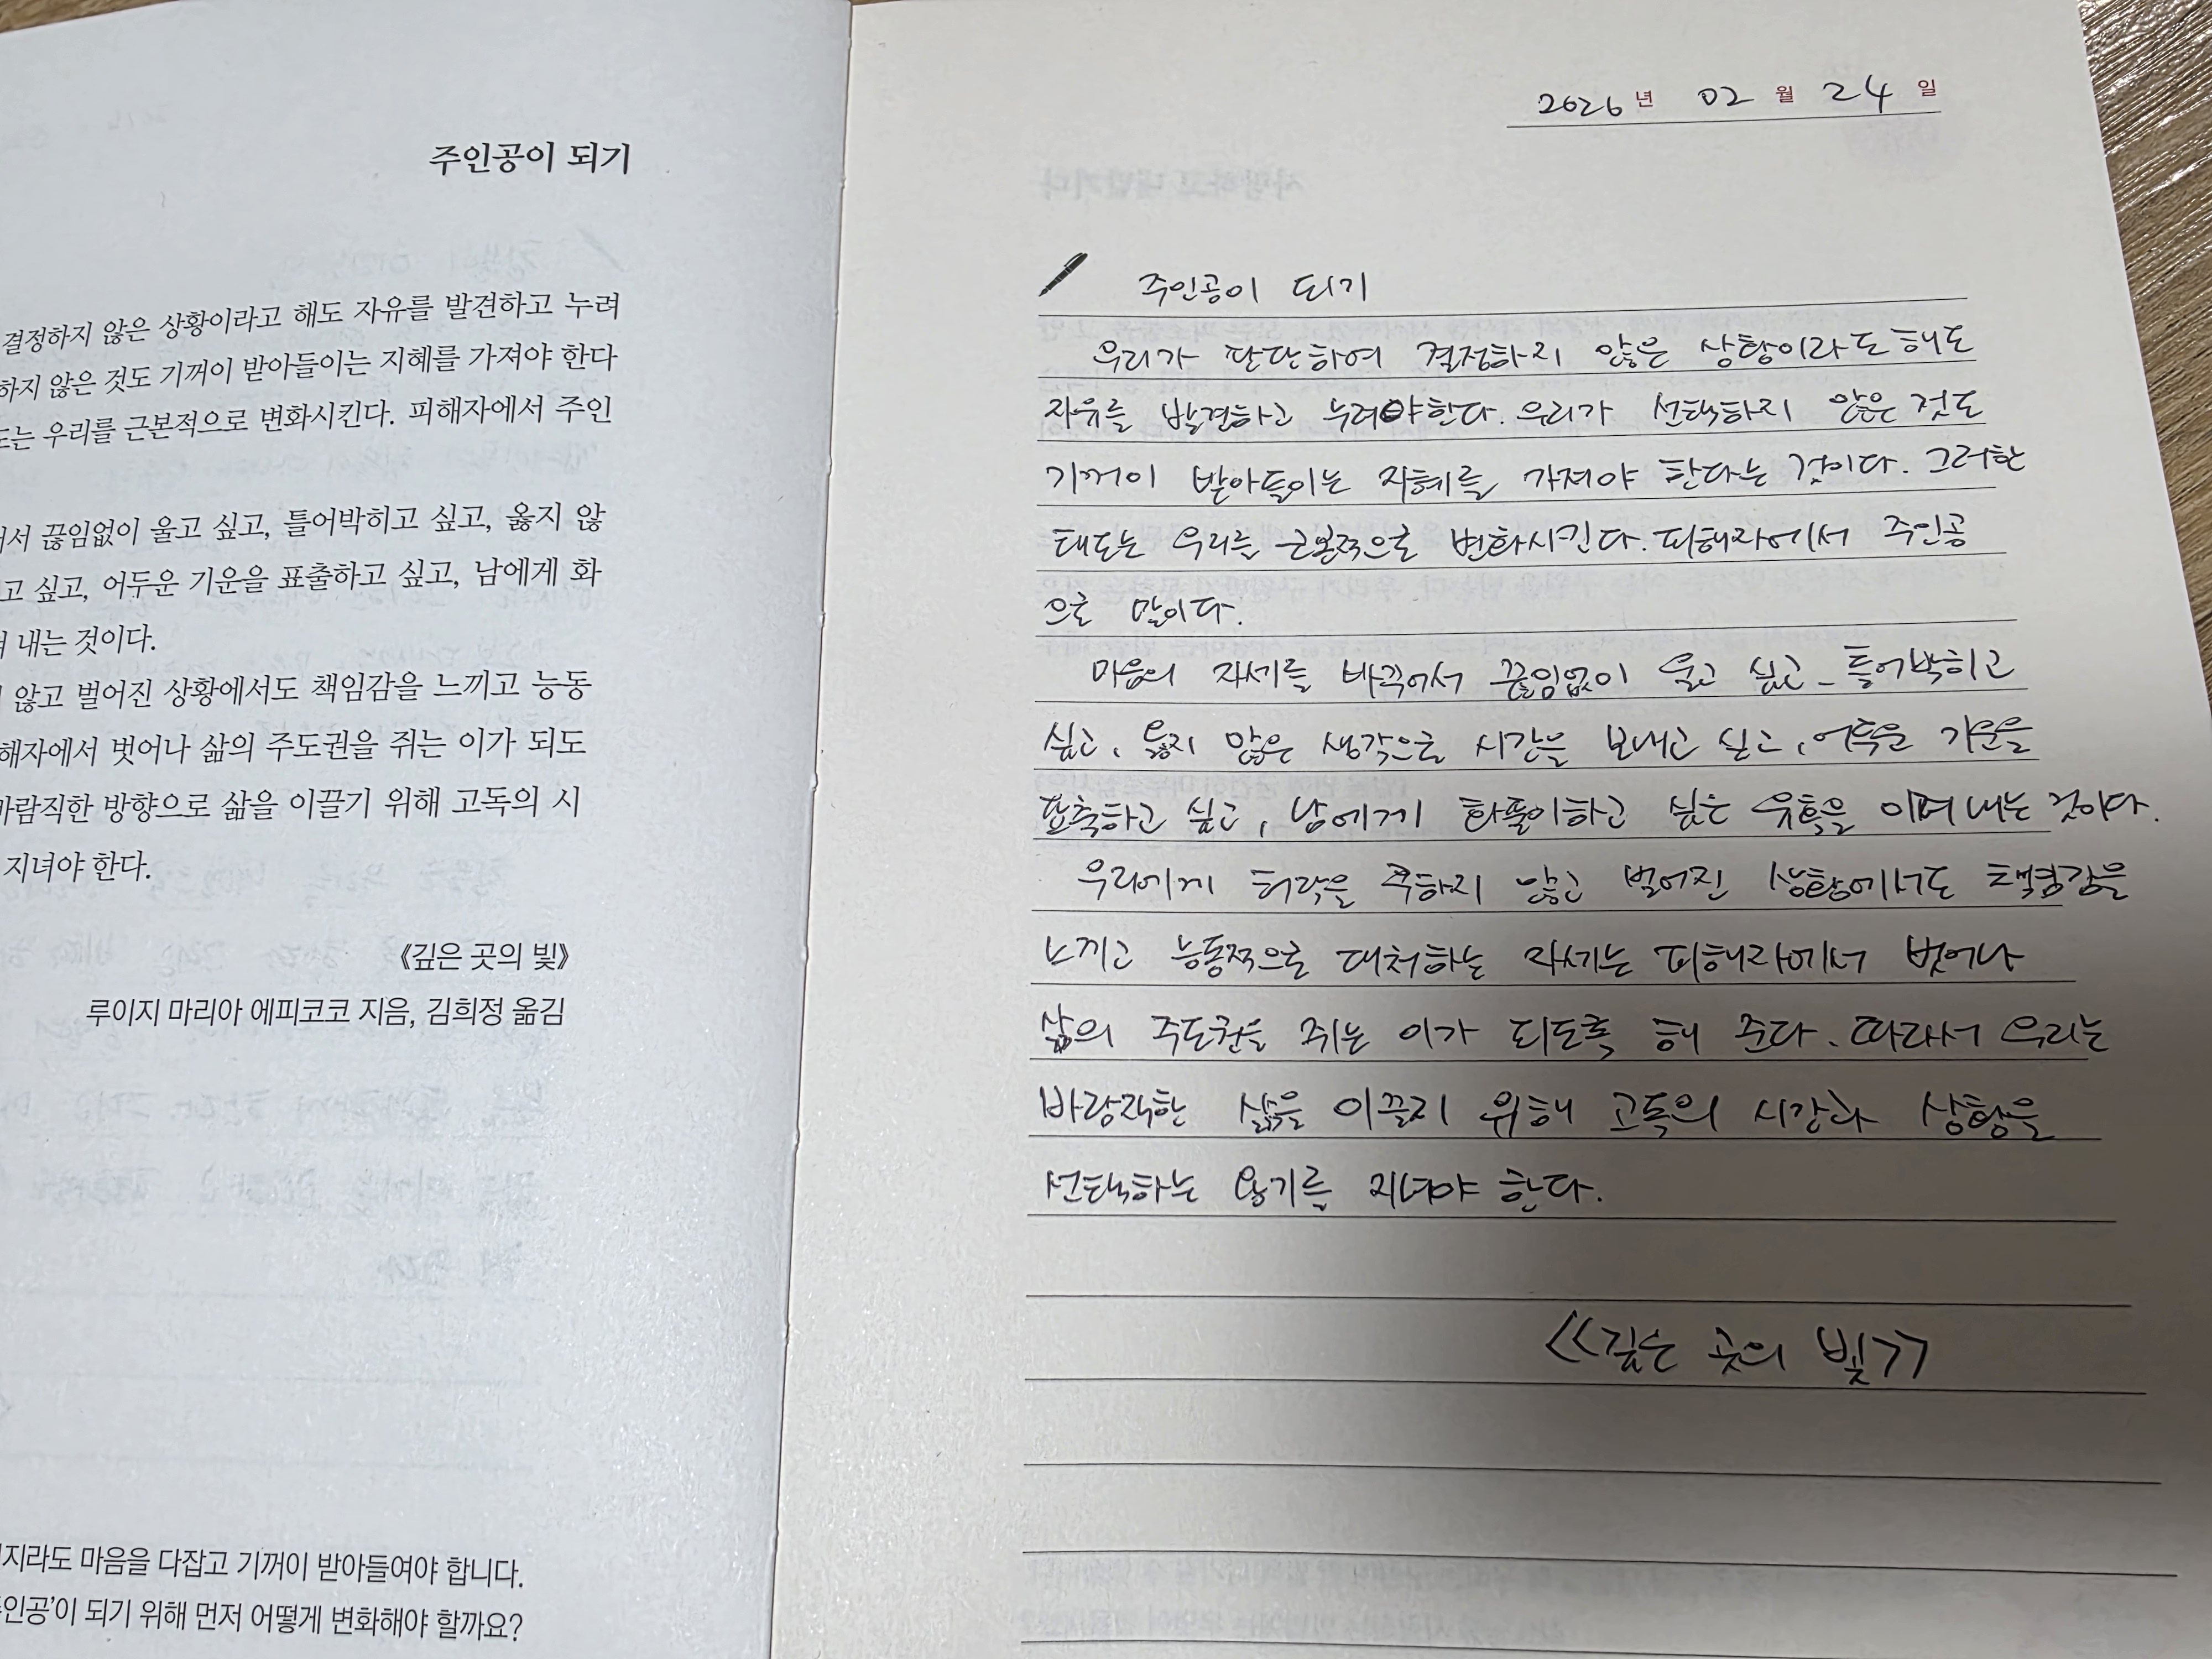 주인공이 되기
결정하지 않은 상황이라고 해도 자유를 발견하고 누려
하지 않은 것도 기꺼이 받아들이는 지혜를 가져야 한다
도는 우리를 근본적으로 변화시킨다. 피해자에서 주인
서 끊임없이 울고 싶고, 틀어박히고 싶고, 옳지 않
고 싶고, 어두운 기운을 표출하고 싶고, 남에게 화
내는 것이다.
않고 벌어진 상황에서도 책임감을 느끼고 능동
해자에서 벗어나 삶의 주도권을 쥐는 이가 되도
바람직한 방향으로 삶을 이끌기 위해 고독의 시
지녀야 한다.
《깊은 곳의 빛》
루이지 마리아 에피코코 지음, 김희정 옮김
지라도 마음을 다잡고 기꺼이 받아들여야 합니다.
인공'이 되기 위해 먼저 어떻게 변화해야 할까요?
2026년 02월 24일
주인공이 되기
우리가 판단하여 결정하지 않은 상황이라도 해도
자유를 발견하고 누려야한다. 우리가 선택하지 않은 것도
기꺼이 받아들이는 지혜를 가져야 한다는 것이다. 그러한
태도는 우리를 근본적으로 변화시킨다. 피해자에서 주인공
으로 말이다.
마음의 자세를 바꾸어서 끊임없이 울고 싶고, 틀어박히고
싶고, 옳지 않은 생각으로 시간을 보내고 싶고, 어두운 기운을
표출하고 싶고, 남에게 화풀이하고 싶은 유혹을 이겨 내는 것이다.
우리에게 허락을 구하지 않고 벌어진 상황에서도 책임감을
느끼고 능동적으로 대처하는 자세는 피해자에서 벗어나
삶의 주도권을 쥐는 이가 되도록 해 준다. 따라서 우리는
바람직한 삶을 이끌기 위해 고독의 시간과 상황을
선택하는 용기를 지녀야 한다.
<<깊은 곳의 빛>>